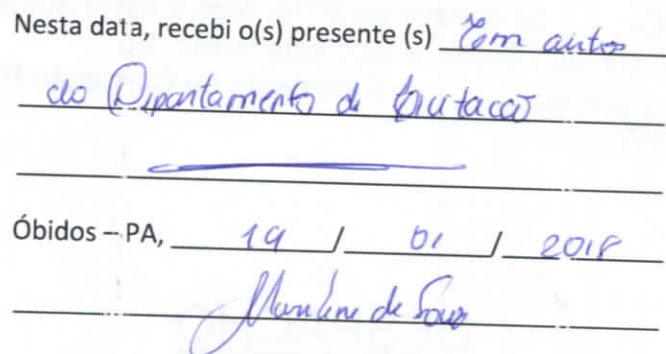 Nesta data, recebi o(s) presente (s) em autos
do Departamento de Licitação
Óbidos – PA, 19 / 01 / 2018
de Souza